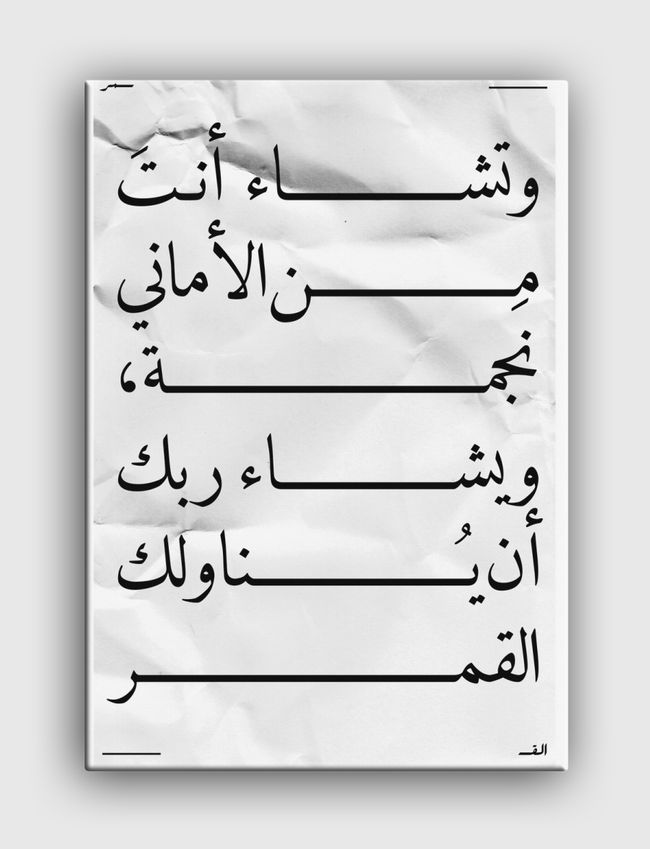 ـمر
وتشـــــاء أنتَ
مِـــــن الأماني
نجمـــــة،
ويشـــــاء ربك
أن يُـــــناولك
القمـــــر
القـ